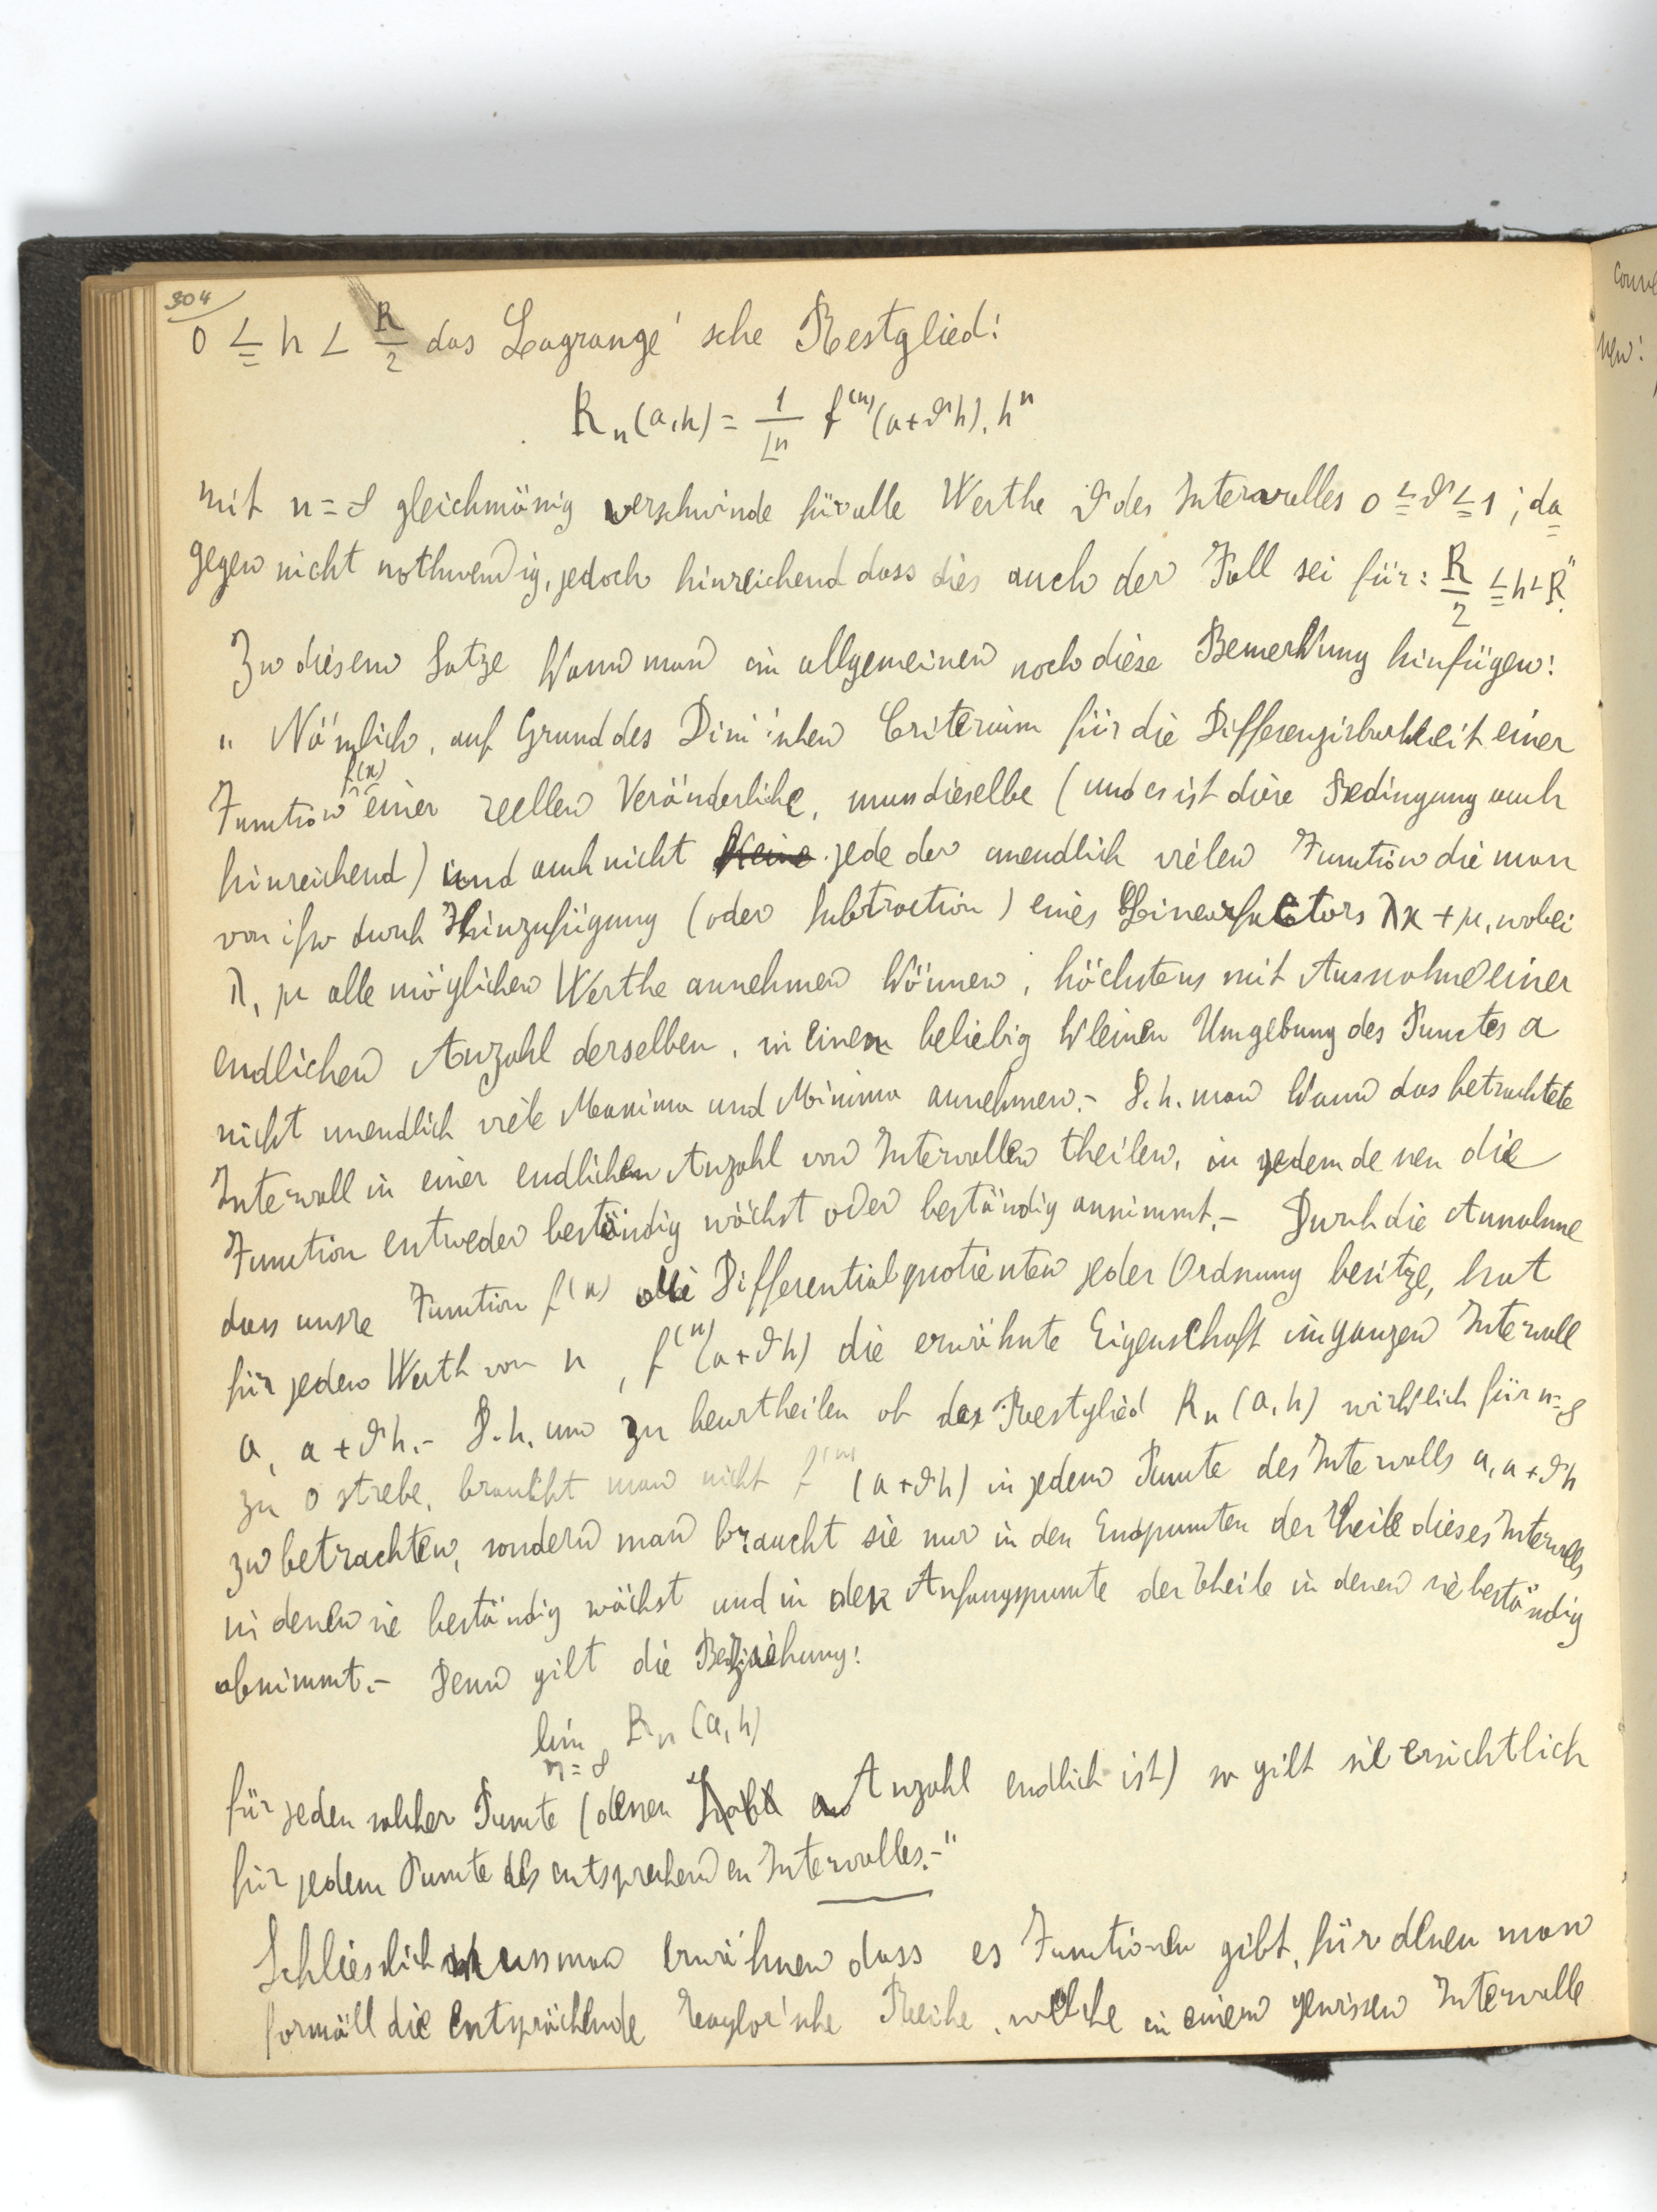 304
0 ≦ h < R/2 das Lagrange'sche Restglied:
R_n(a,h) = 1/⌊n f^(n)(a+ϑh). h^n
mit n=∞ gleichmässig verschwinde für alle Werthe ϑ des Intervalles 0≦ϑ≦1; da=
gegen nicht nothwendig, jedoch hinreichend dass dies auch der Fall sei für: R/2 ≦h<R."
Zu diesem Satze kann man im allgemeinen noch diese Bemerkung hinfügen:
„ Nämlich, auf Grund des Dini'schen Criterium für die Differenzirbarkeit einer
Function f(x) einer reellen Veränderliche, muss dieselbe (und es ist diese Bedingung auch
hinreichend) und auch nicht jede der unendlich vielen Function die man
von ihr durch Hinzufügung (oder Subtraction) eines Linearfactors λx+μ, wobei
λ, μ alle möglichen Werthe annehmen können, höchstens mit Ausnahme einer
endlichen Anzahl derselben, in einen beliebig kleinen Umgebung des Punctes a
nicht unendlich viele Maxima und Minima annehmen.- D.h. man kann das betrachtete
Intervall in einer endlichen Anzahl von Intervallen theilen, in jedem denen die
Function entweder beständig wächst oder beständig annimmt.- Durch die Annahme
dass unsre Function f(x) alle Differentialquotienten jeder Ordnung besitze, hat
für jeden Werth von n, f^(n)(a+ϑh) die erwähnte Eigenschaft im ganzen Intervall
a, a+ϑh.- D.h. um zu beurtheilen ob das Restglied R_n(a,h) wirklich für n=∞
zu 0 strebe, braucht man nicht f^(n)(a+ϑh) in jedem Puncte des Intervalls a, a+ϑh
zu betrachten, sondern man braucht sie nur in den Endpuncten der Theile dieses Intervalls
in denen sie beständig wächst und in den Anfangspuncte der Theile in denen sie beständig
abnimmt.- Denn gilt die Beziehung:
lim n=∞ R_n(a,h)
für jeden solcher Puncte (denen Anzahl endlich ist) so gilt sie ersichtlich
für jedem Puncte des entsprechenden Intervalles.-"
Schliesslich muss man erwähnen dass es Functionen gibt, für denen man
formäll die entsprächende Taylor'sche Reihe, welche in einem gewissen Intervalle